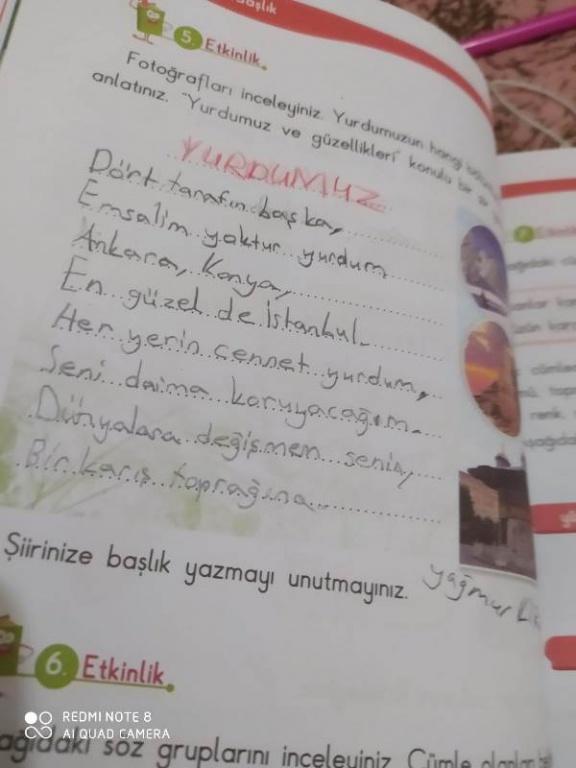 5. Etkinlik
Fotoğrafları inceleyiniz. Yurdumuzun hangi
anlatınız. "Yurdumuz ve güzellikleri" konulu bir
YURDUMUZ
Dört tarafın başka,
Emsalim yoktur yurdum
Ankara, Konya,
En güzel de İstanbul.
Her yerin cennet yurdum,
Seni daima koruyacağım.
Dünyalara değişmem senin,
Bir karış toprağına
Şiirinize başlık yazmayı unutmayınız.
yağmur
6. Etkinlik
söz gruplarını inceleyiniz. Cümle
REDMI NOTE 8
AI QUAD CAMERA